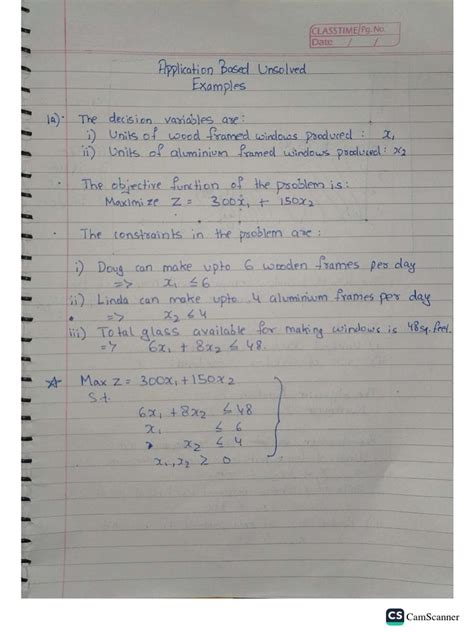 CLASSTIME/Pg. No.
Date / /
Application Based Unsolved
Examples
1a). The decision variables are:
i) Units of wood framed windows produced : x₁
ii) Units of aluminium framed windows produced: x₂
· The objective function of the problem is:
Maximize Z = 300x₁ + 150x₂
· The constraints in the problem are :
i) Doug can make upto 6 wooden frames per day
=> x₁ ≤ 6
ii) Linda can make upto 4 aluminium frames per day
=> x₂ ≤ 4
iii) Total glass available for making windows is 48 sq. feet.
=> 6x₁ + 8x₂ ≤ 48.
Max Z = 300x₁ + 150x₂
S.t.
6x₁ + 8x₂ ≤ 48
x₁ ≤ 6
x₂ ≤ 4
x₁, x₂ ≥ 0
CS CamScanner